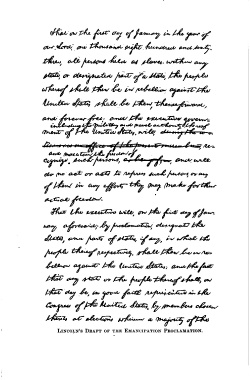 That on the first day of January in the year of
our Lord, one thousand eight hundred and sixty-
three, all persons held as slaves within any
state, or designated part of a state, the people
whereof shall then be in rebellion against the
United States shall be then, thenceforward,
and forever free, and the executive govern-
including the military and naval authority thereof
ment of the United States, will, during the
re-
and maintain the freedom of
cognize, such persons, and will
do no act or acts to repress such persons, or any
of them, in any efforts they may make for their
actual freedom.
That the executive will, on the first day of Jan-
uary aforesaid, by proclamation, designate the
States, and parts of states, if any, in which the
people thereof respectively, shall then be in re-
bellion against the United States, and the fact
that any state or the people thereof shall, on
that day be, in good faith represented in the
Congress of the United States, by members chosen
thereto, at elections wherein a majority of the
LINCOLN'S DRAFT OF THE EMANCIPATION PROCLAMATION.